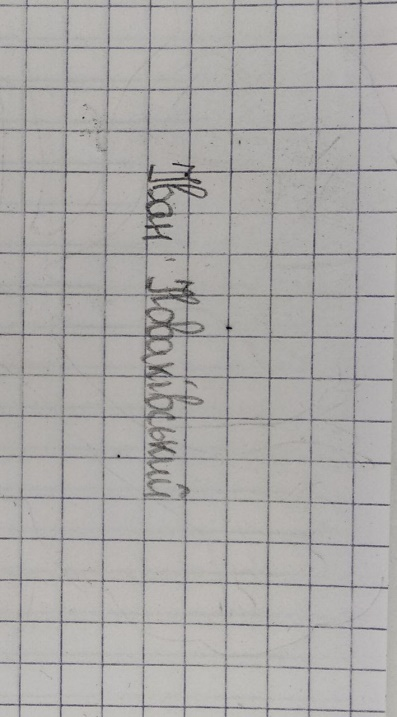 Іван Новаківський